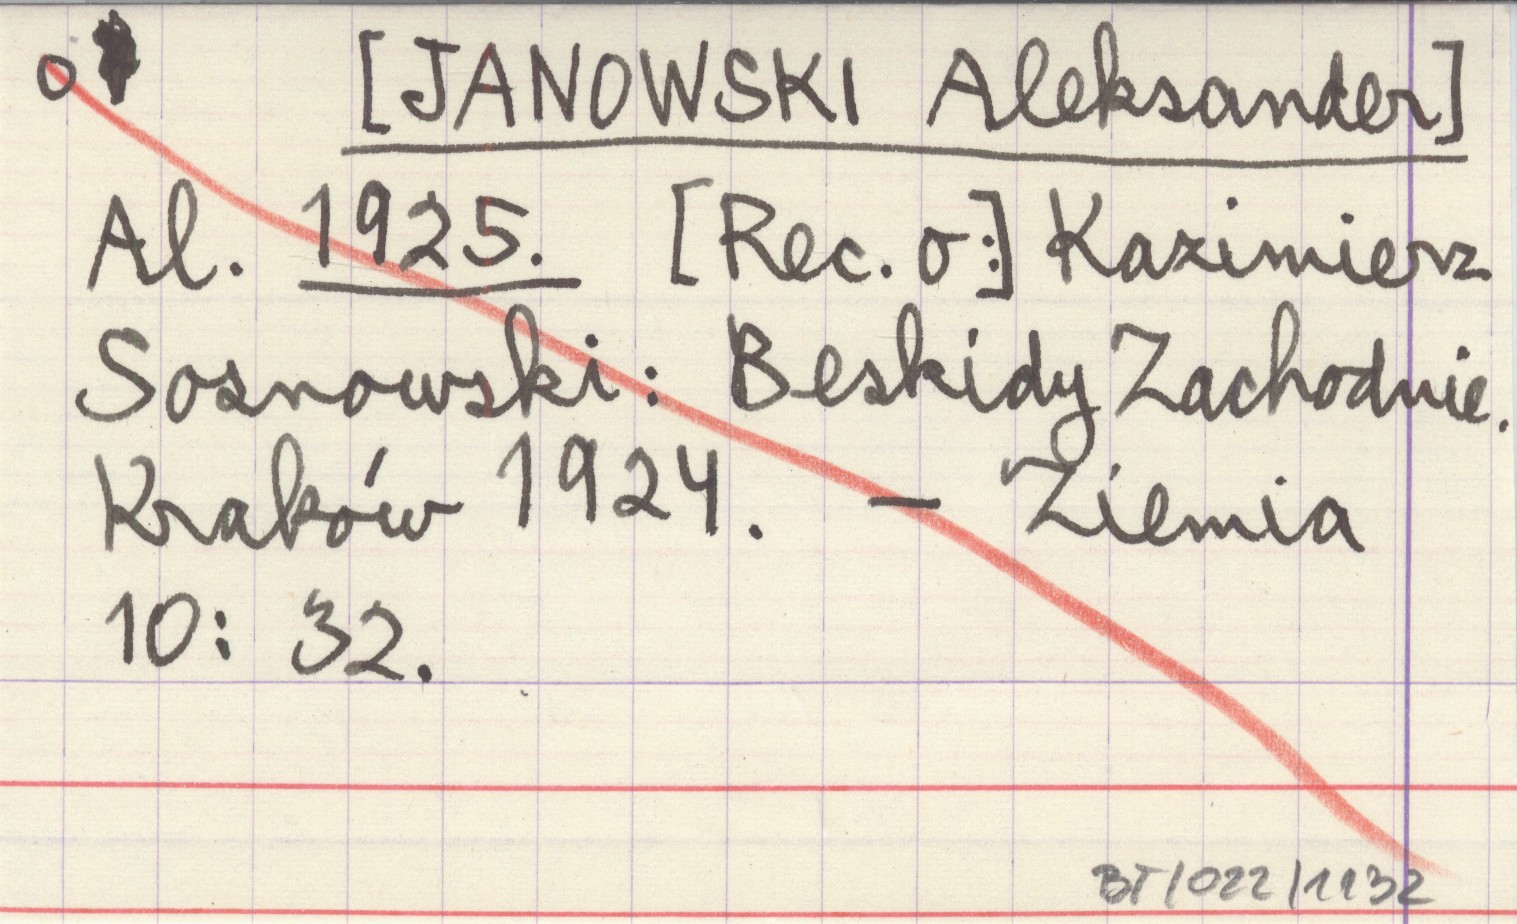 O
[JANOWSKI Aleksander]
Al. 1925. [Rec. o:] Kazimierz
Sosnowski: Beskidy Zachodnie.
Kraków 1924. – Ziemia
10: 32.
BT/022/1132